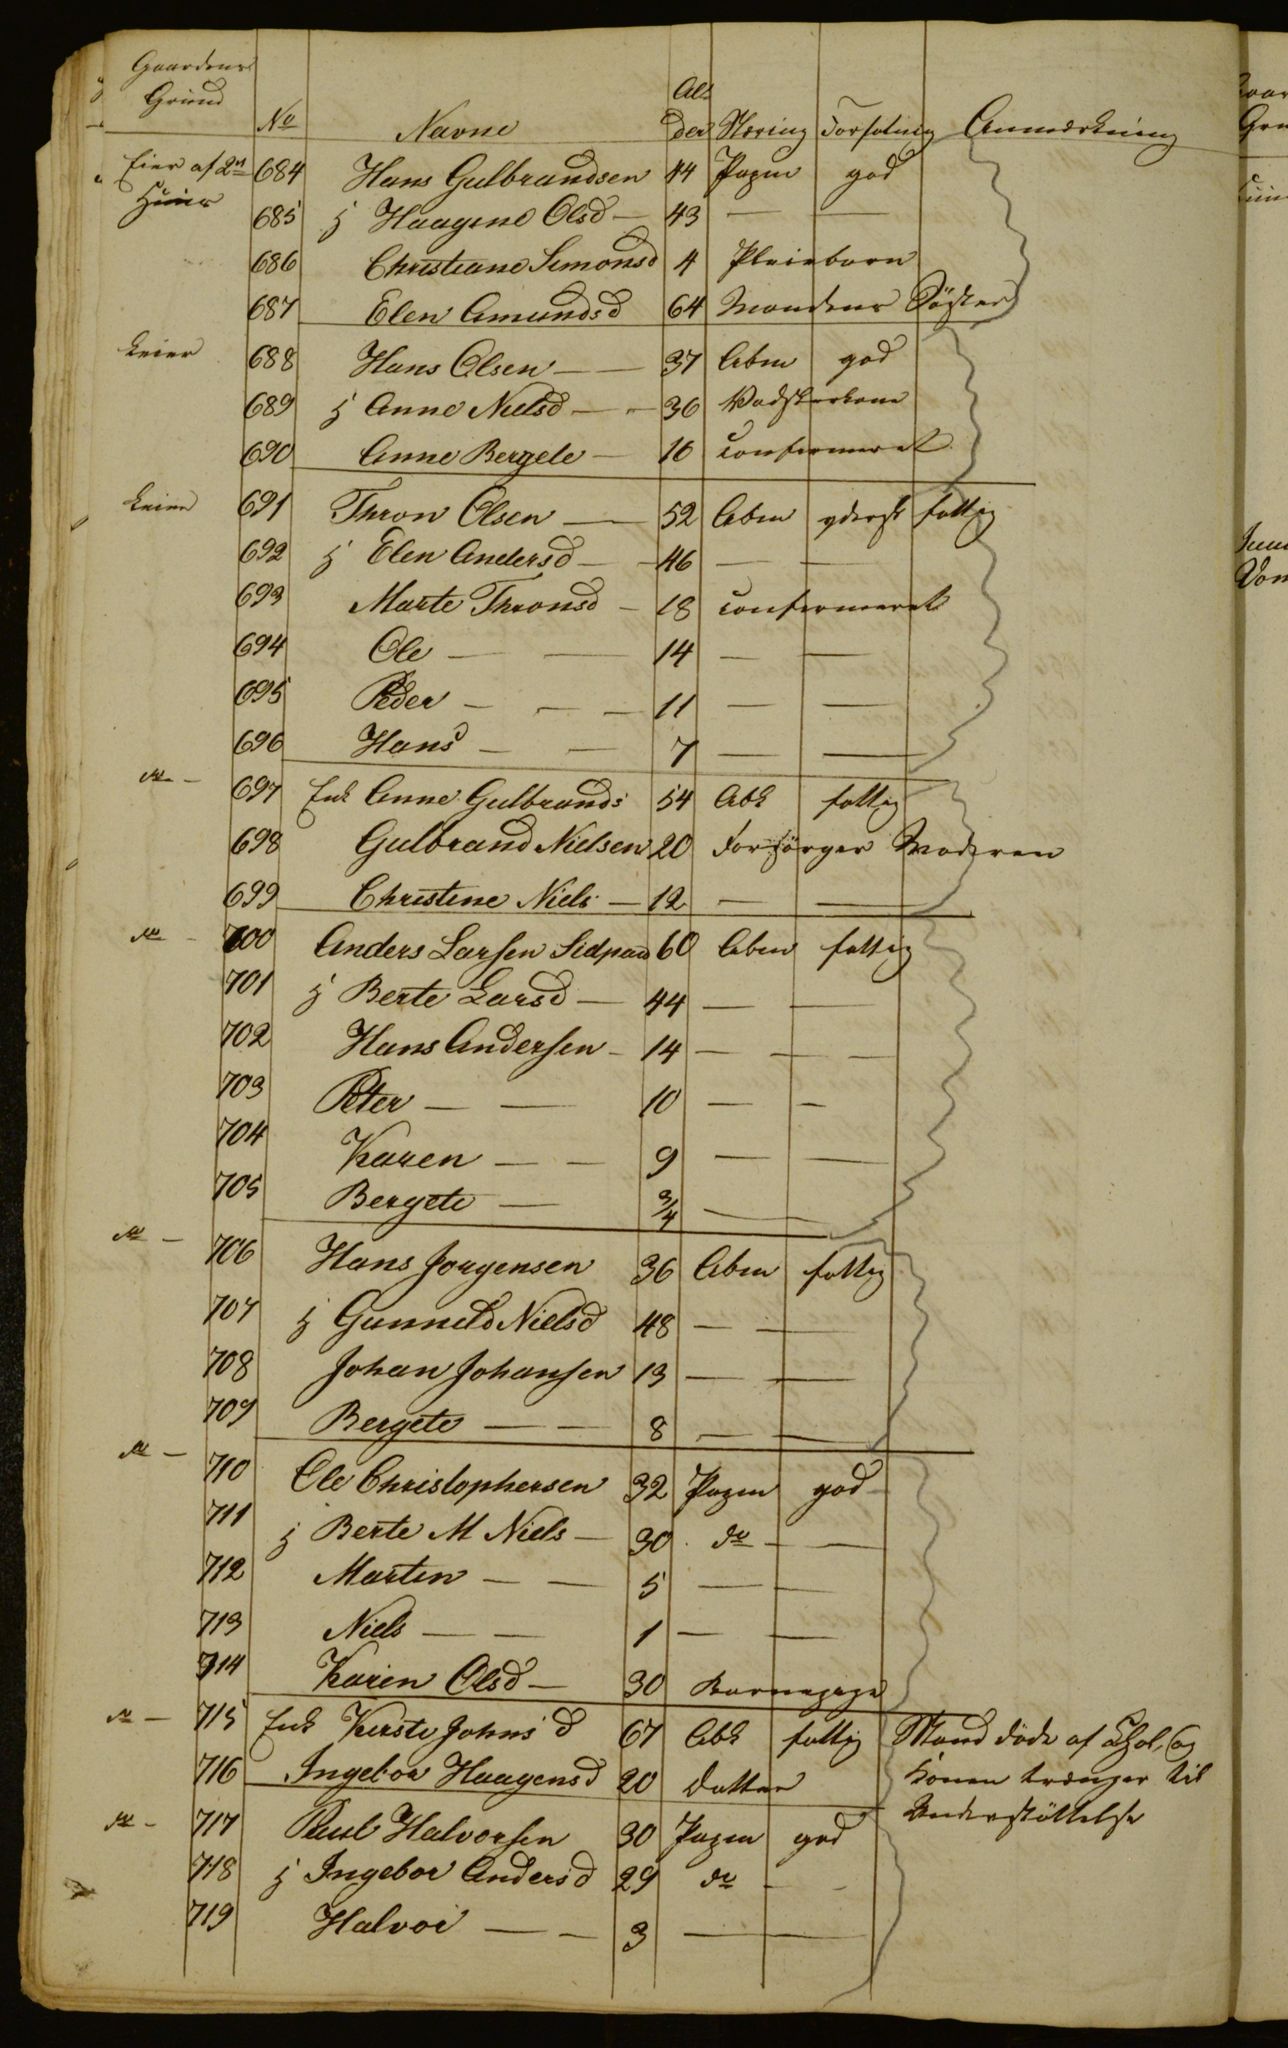 Gaardens
Grund No Navne Alder Næring Forfatning Anmærkning
Eier af 2de 684 Hans Gulbrandsen 44 god
Huus 685 H Haagine Olsd — 43 — —
686 Christiane Simonsd 4 Pleiebarn
687 Elen Amundsd 64 Mandens Søster
Leier 688 Hans Olsen — — 37 Abm god
689 H Anne Nielsd — — 36 Vadskerkone
690 Anne Bergete — 16 confirmeret
Leier 691 Thron Olsen — 52 Abm yderst fattig
692 H Elen Andersd — — 46 — —
693 Marte Thronsd — 18 confirmeret
694 Ole — — 14 — —
695 Peder — — — 11 — —
696 Hans — — 7 — —
do — 697 Enk Anne Gulbrands 54 Abk fattig
698 Gulbrand Nielsen 20 Forsørger Moderen
699 Christine Niels — 12 — —
do — 700 Anders Larsen Sidpaa 60 Abm fattig
701 H Berte Larsd — 44 — —
702 Hans Andersen — 14 — — —
703 Peter — — 10 — —
704 Karen — — 9 — —
705 Bergete — 3/4 —
do — 706 Hans Jorgensen 36 Abm fattig
707 H Gunneld Nielsd 48 — —
708 Johan Johansen 13 — —
709 Bergete — — 8 — —
do — 710 Ole Christophersen 32 god
711 H Berte M Niels — 30 do — —
712 Martin — — 5 — —
713 Niels — — 1 — —
714 Karen Olsd — 30 Barnepige
do — 715 Enk Kerste Johns d 67 Abk fattig Mand døde af Chol. og
716 Ingebor Haagensd 20 datter Konen trænger til
Understøttelse
do — 717 Paul Halvorsen 30 god
718 H Ingebor Anders d 29 do — —
719 Halvor — — 3 — —